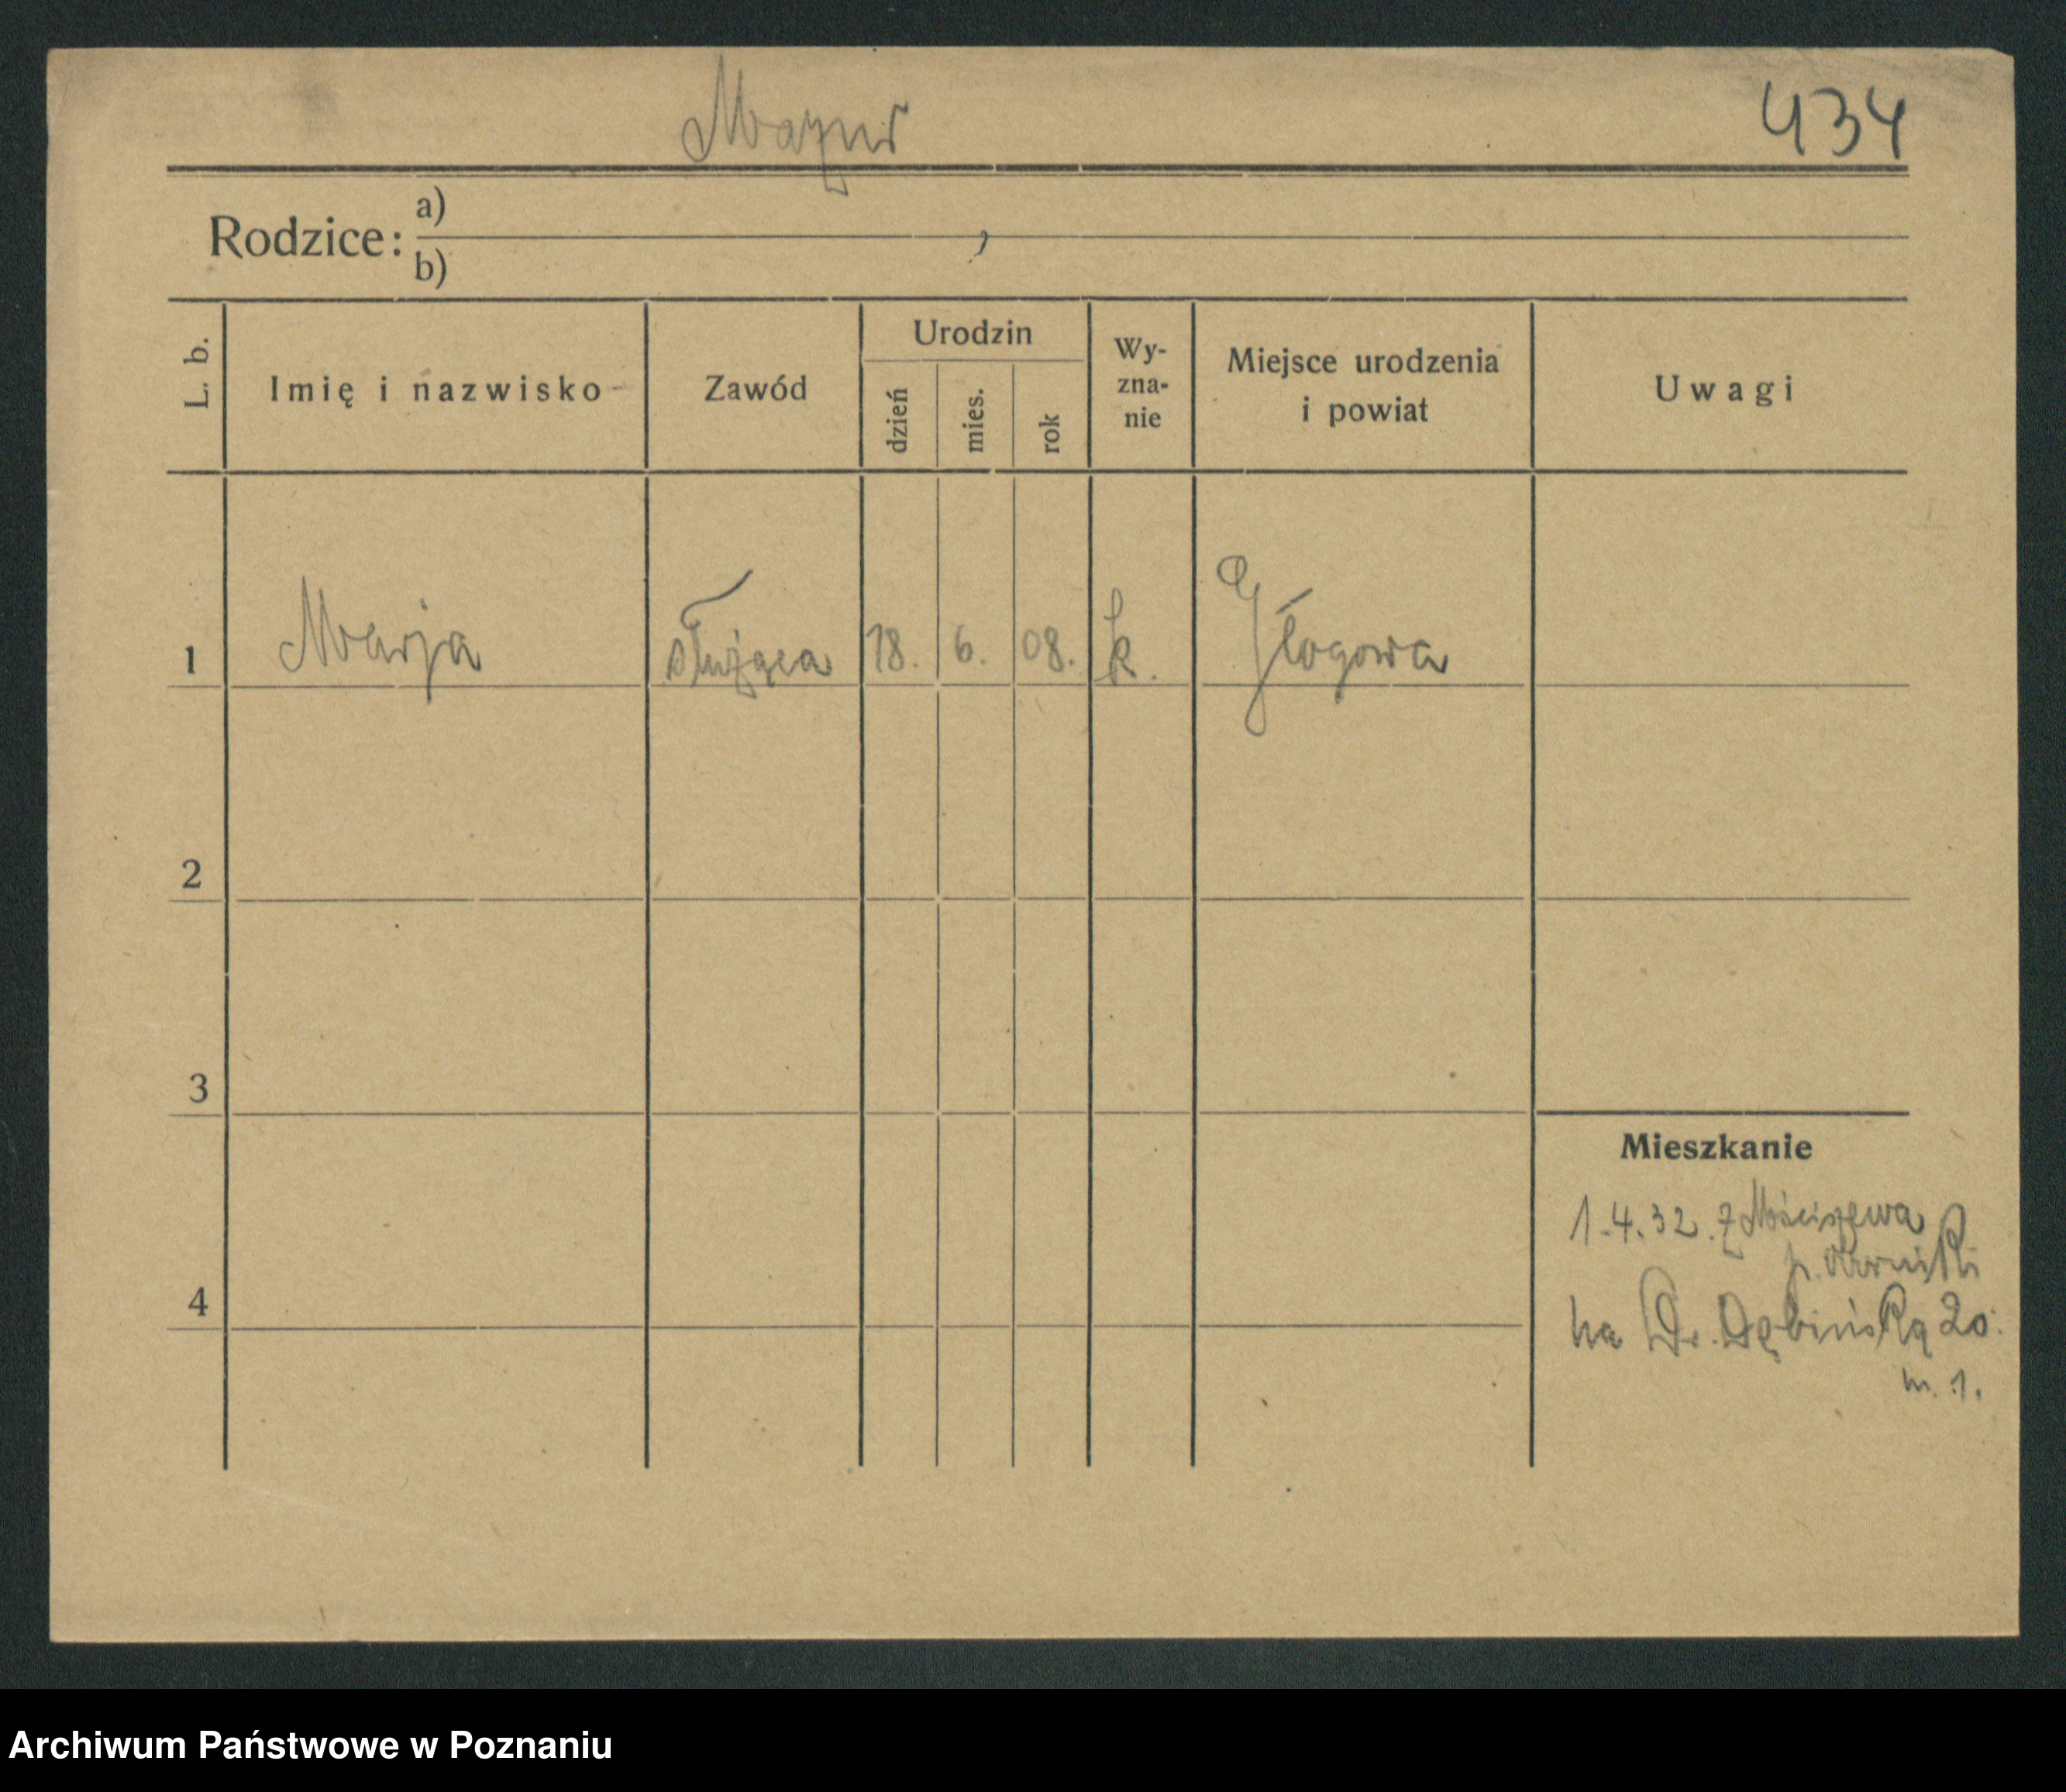 Mazur
434
Rodzice: a)
b)
L. b.
Imię i nazwisko
Zawód
Urodzin
dzień
mies.
rok
Wy-
zna-
nie
Miejsce urodzenia
i powiat
Uwagi
1 Marja służąca 18. 6. 08. k. Głogowa
2
3
4
Mieszkanie
1.4.32. z Mściszewa
p. Obornicki
na Dr. Dębińską 20.
m. 1.
Archiwum Państwowe w Poznaniu